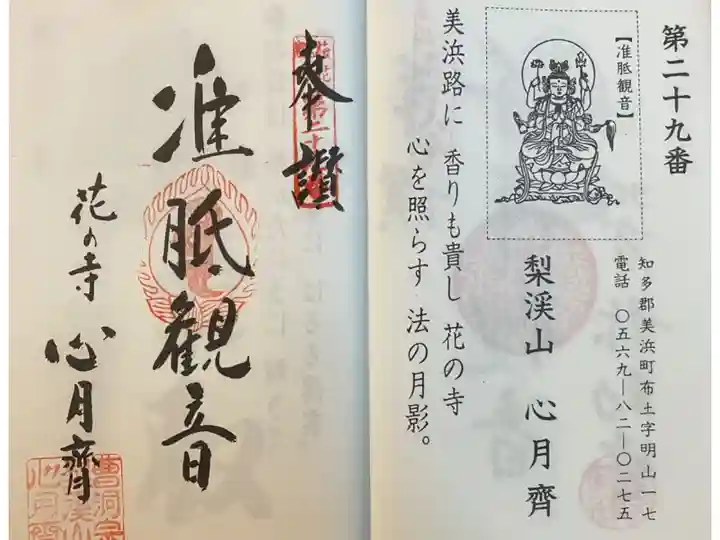 第二十九番
【准胝観音】
知多郡美浜町布土字明山一七
電話 〇五六九―八二―〇二七五
梨渓山 心月齊
美浜路に 香りも貴し 花の寺
心を照らす 法の月影。
奉讃
准胝観音
花の寺 心月齊